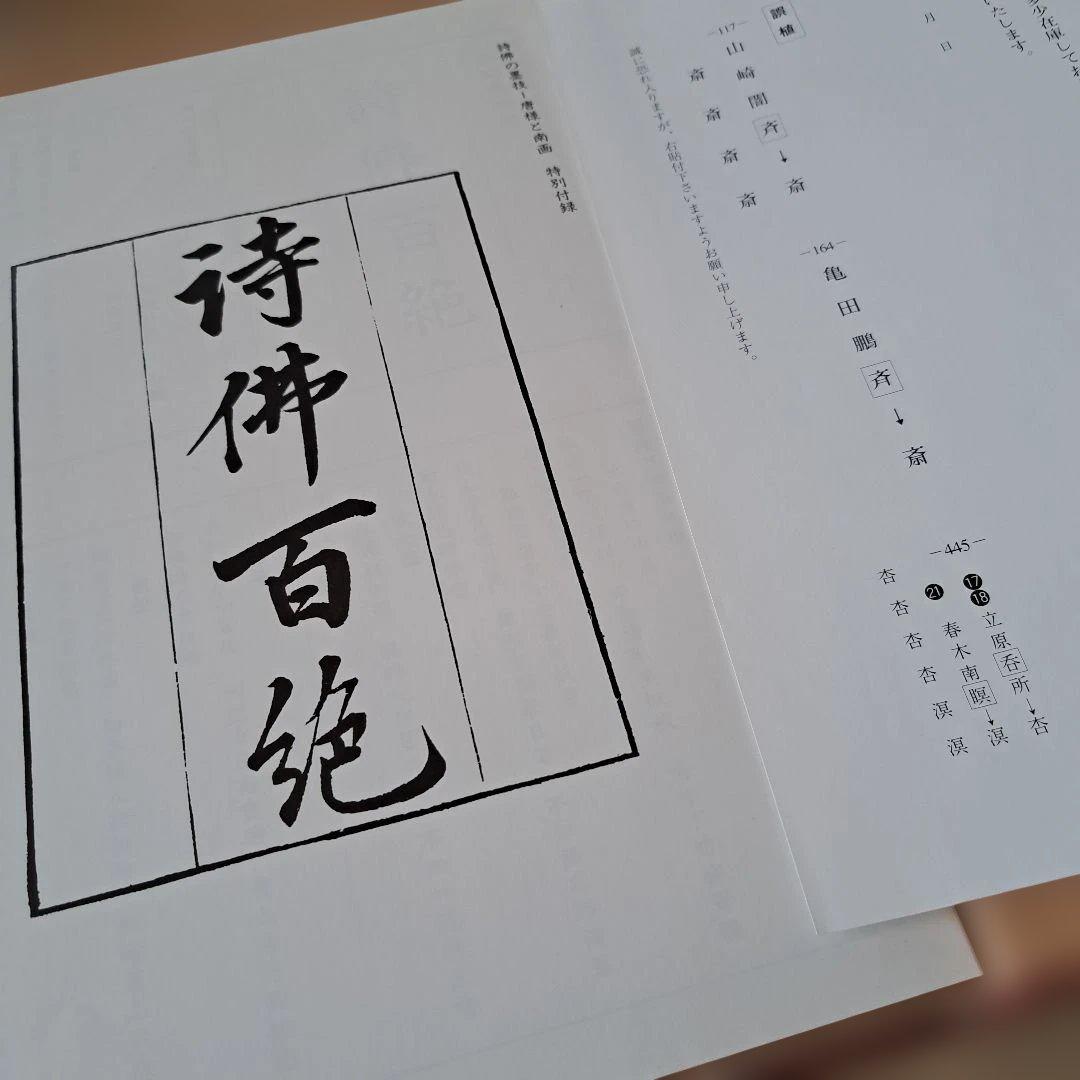 多少在庫してお
いたします。
月　日
誤植
―117―
山崎闇斉→斎
斎斎斎斎
―164―
亀田鵬斉→斎
―445―
⓱⓲立原呑所→杏
㉑春木南暝→溟
杏杏杏杏溟溟
誠に恐れ入りますが、右貼付下さいますようお願い申し上げます。
詩佛の墨技―唐様と南画　特別付録
詩佛百絶